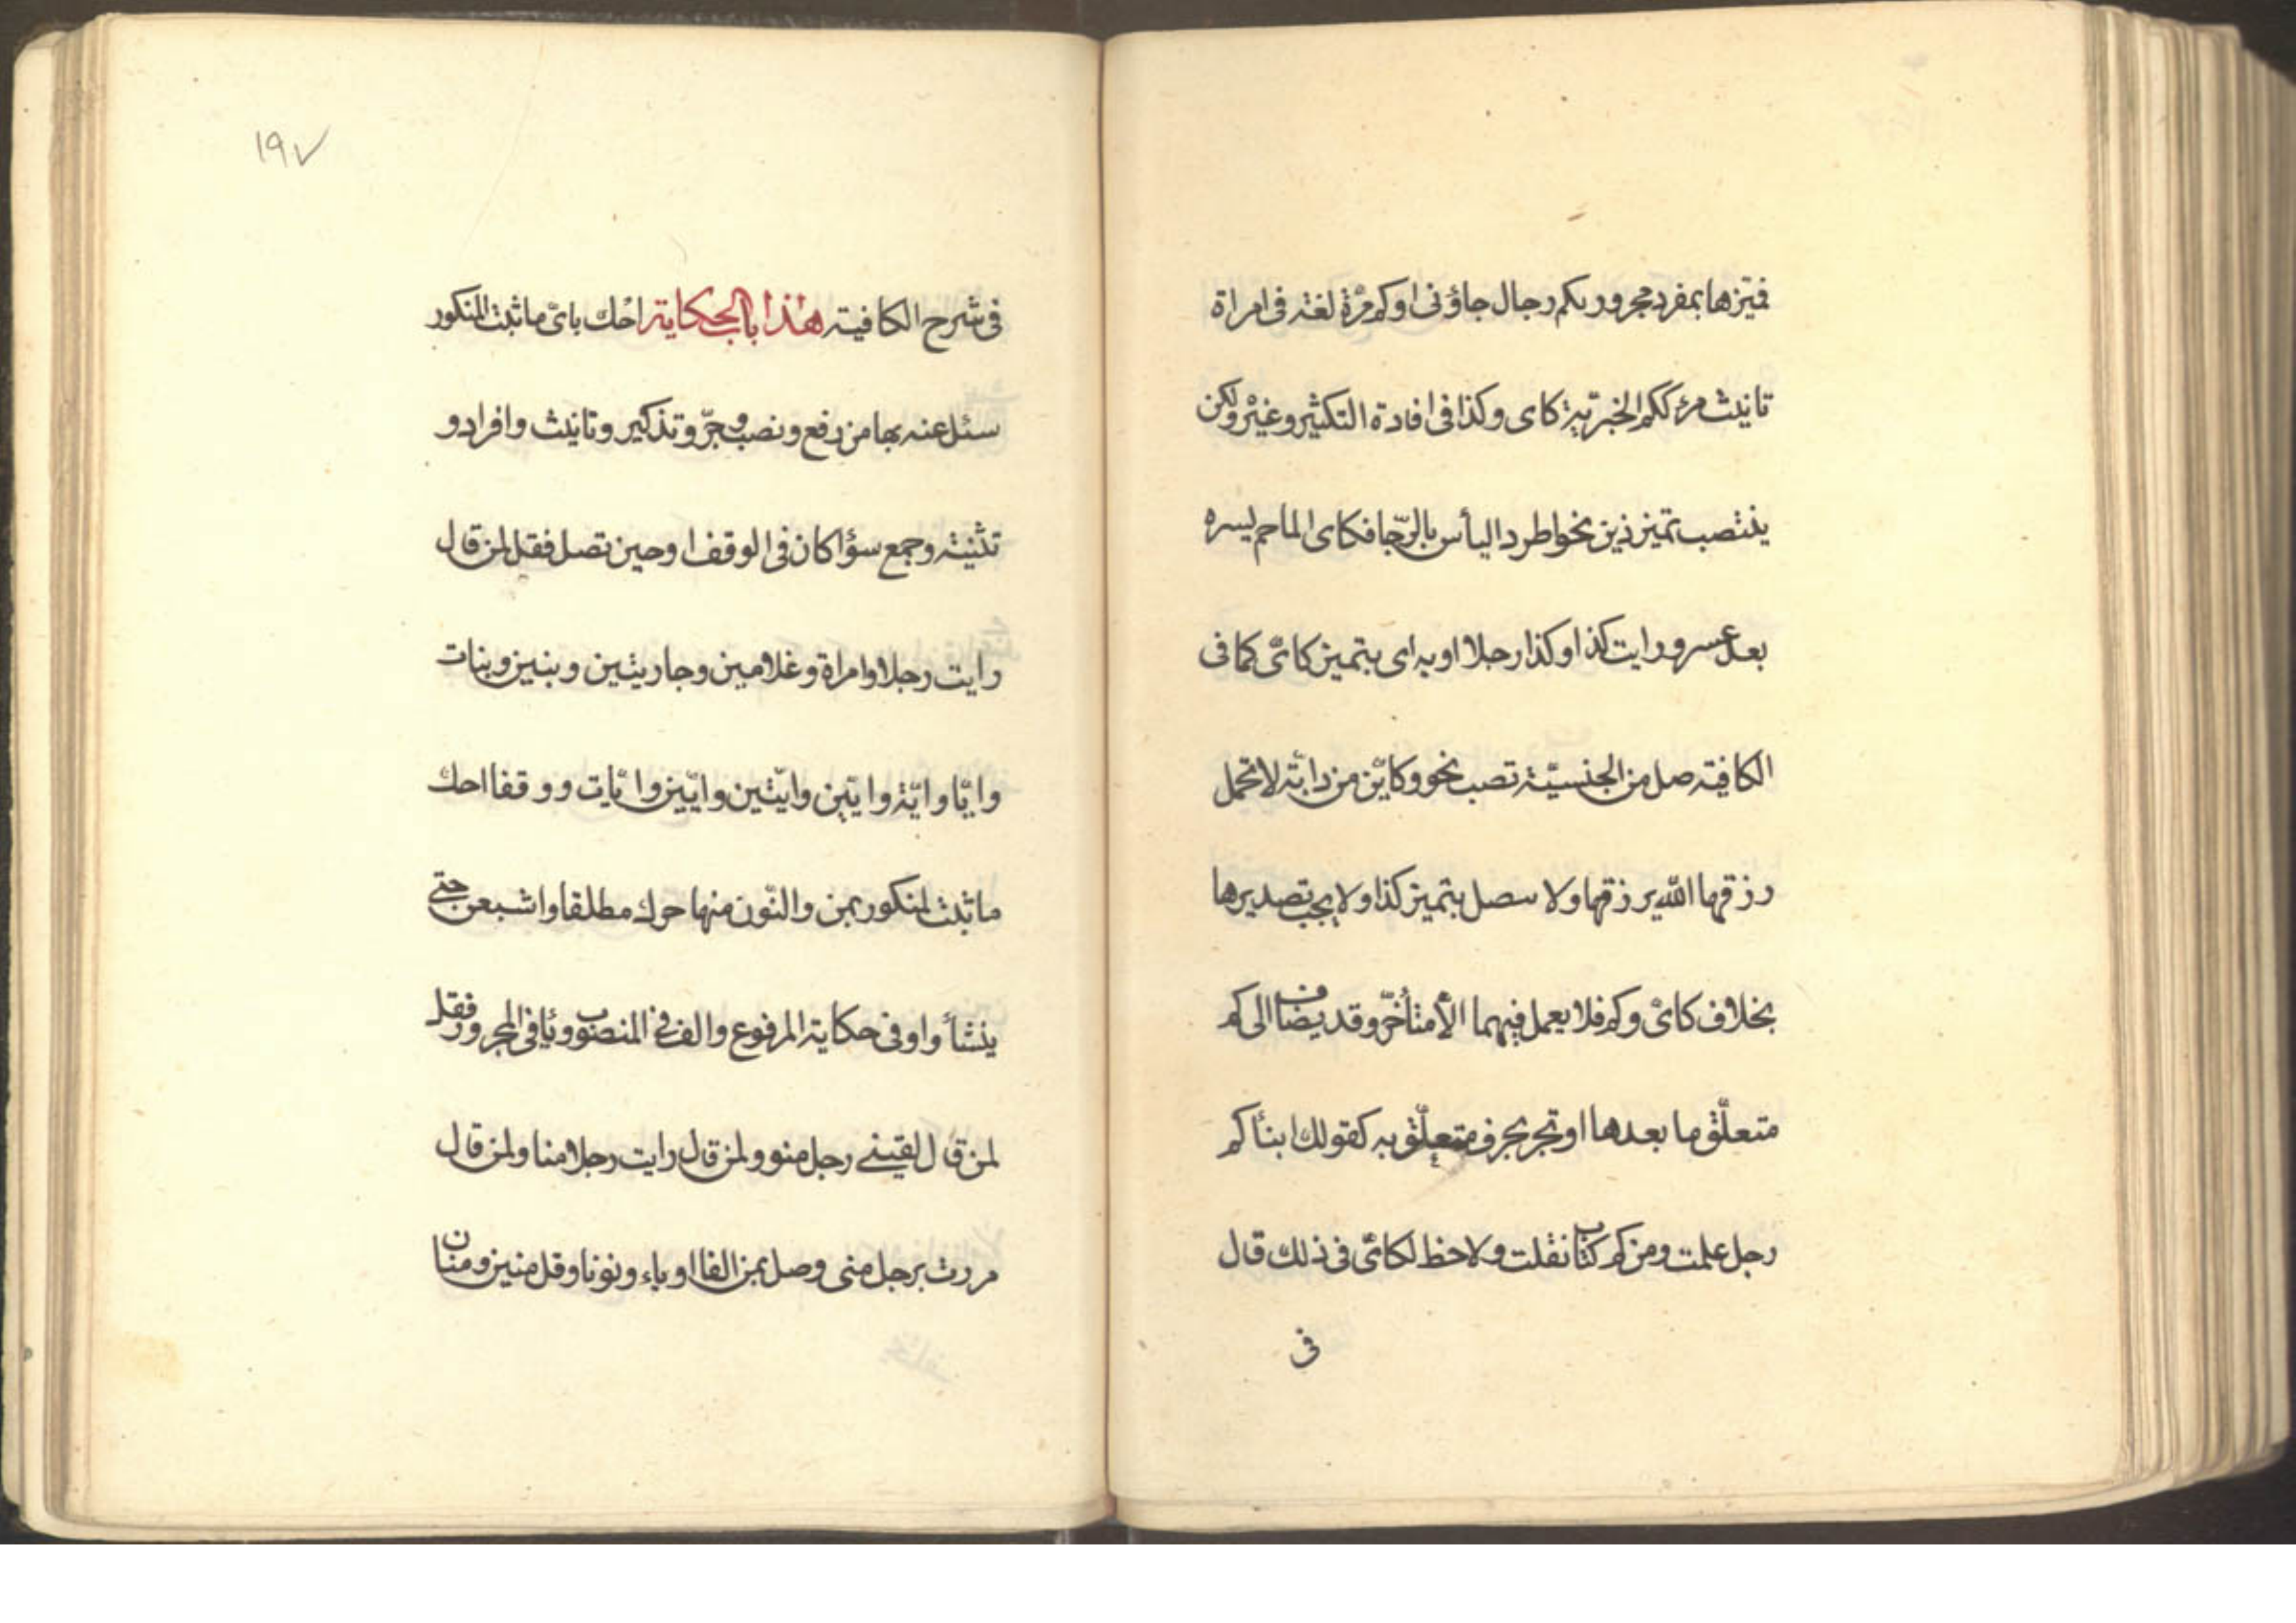 فميزها بمفرد مجرور بكم رجال جاؤنى او كم مرة لغة فى امراة
تانيث مرء ككم الخبرية كاى وكذا فى افادة التكثير وغيره ولكن
ينتصب تميز ذين نحو اطرد اليأس بالرّجا فكاى الما حم يسره
بعد عسر ورايت كذا وكذا رجلا او به اى بتميز كائ كما فى
الكافية صل من الجنسيّة تصب نحو وكايّن من دابّة لا تحمل
رزقها الله يرزقها ولا تصل بتميز كذا ولا يجب تصديرها
بخلاف كائ وكم فلا يعمل فيهما الا متأخّر وقد يضاف الى كم
متعلّق ما بعدها او تجر بحرف متعلّق به كقولك ابناكم
رجل علمت ومن كم كتاب نقلت ولا حظ لكائ فى ذلك قال
فى
١٩٧
فى شرح الكافية هذا باب الحكاية احك باىّ ما ثبت لمنكور
سئل عنه بها من رفع ونصب وجرّ وتذكير وتانيث وافراد و
تثنية وجمع سؤا كان فى الوقف او حين تصل فقل لمن قال
رايت رجلا وامراة وغلامين وجاريتين وبنين وبنات
وايّا وايّة وايّين وايّتين وايّين وايّات ووقفا احك
ما ثبت لمنكور بمن والنّون منها حرك مطلقا واشبعن حتى
ينشأ واو فى حكاية المرفوع والف فى المنصوب ويا فى المجرور فقل
لمن قال لقينى رجل منو ولمن قال رايت رجلا منا ولمن قال
مررت برجل منى وصل بمن الفا او ياء ونونا وقل منين ومنان